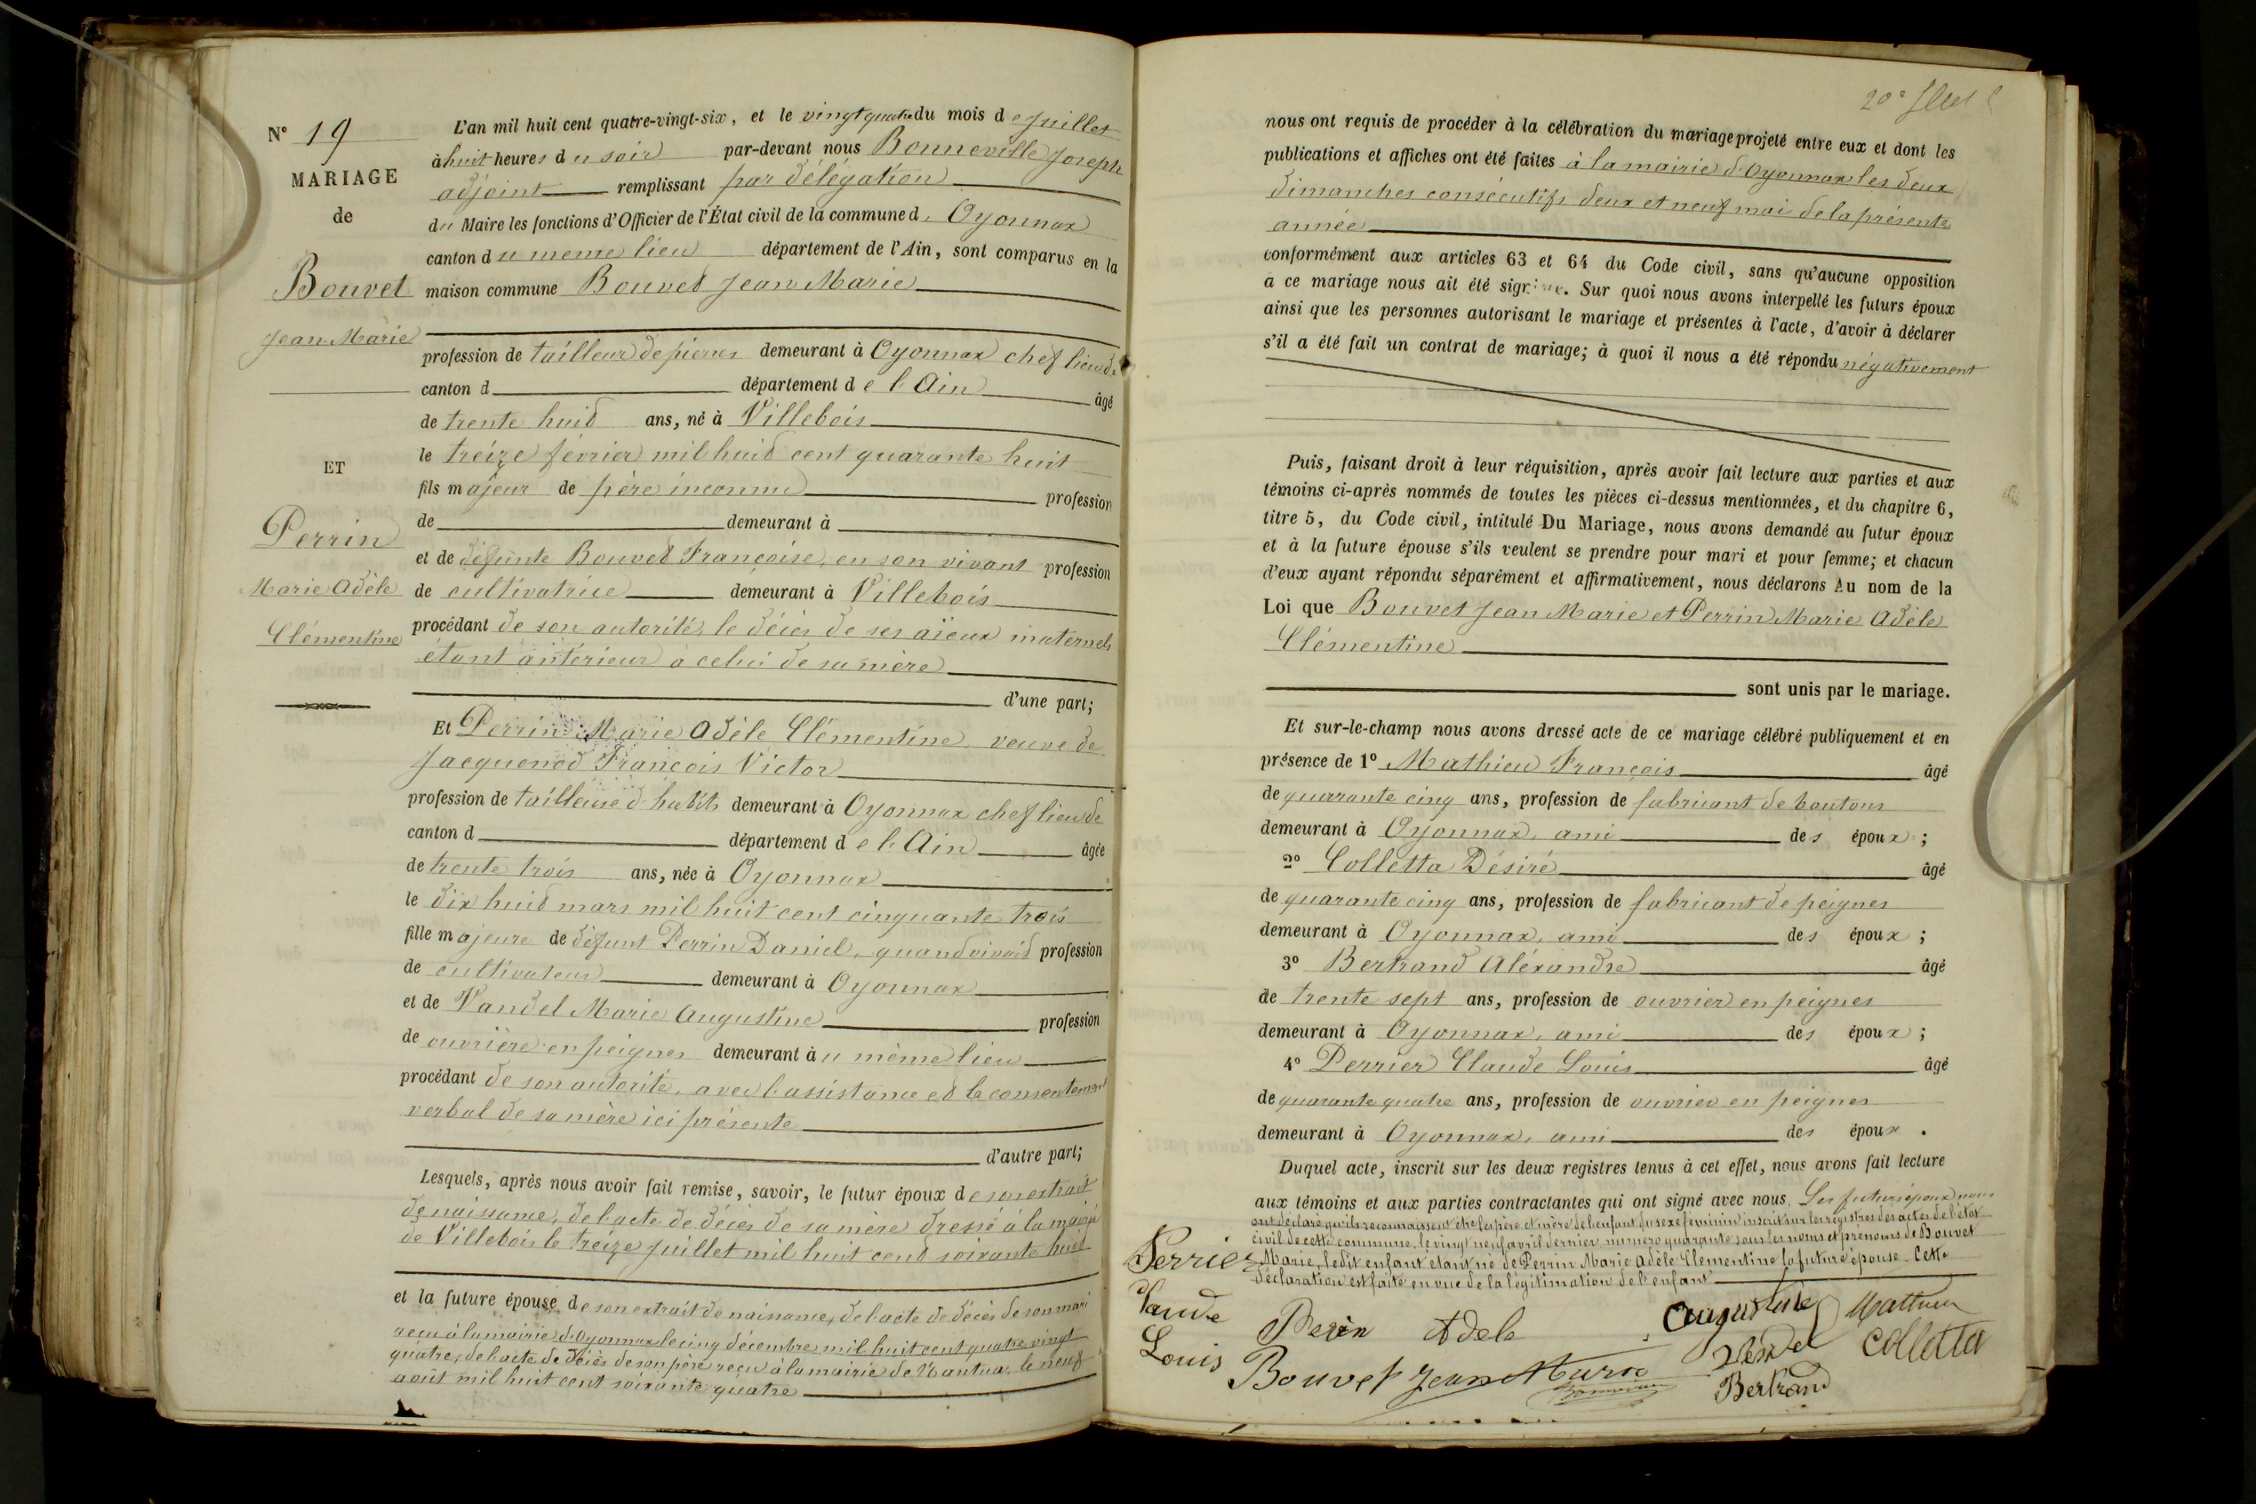 N° 19
MARIAGE
de
Bouvet
Jean Marie
ET
Perrin
Marie Adèle
Clémentine
L'an mil huit cent quatre-vingt-six, et le vingt quatre du mois de Juillet
à huit heures du soir par-devant nous Bonneville Joseph
adjoint remplissant par délégation
du Maire les fonctions d'Officier de l'État civil de la commune d. Oyonnax
canton du meme lieu département de l'Ain, sont comparus en la
maison commune Bouvet Jean Marie
profession de tailleur de pierres demeurant à Oyonnax chef lieu de
canton d département de l'Ain âgé
de trente huit ans, né à Villebois
le treize février mil huit cent quarante huit
fils majeur de père inconnu profession
de demeurant à
et de défunte Bouvet Françoise, en son vivant profession
de cultivatrice demeurant à Villebois
procédant de son autorité, le décès de ses aïeux maternels
étant antérieur à celui de sa mère
d'une part;
Et Perrin Marie Adèle Clémentine veuve de
Jacquenod François Victor
profession de tailleuse d'habits demeurant à Oyonnax chef lieu de
canton d département de l'Ain âgée
de trente trois ans, née à Oyonnax
le dix huit mars mil huit cent cinquante trois
fille majeure de défunt Perrin Daniel, quand vivait profession
de cultivateur demeurant à Oyonnax
et de Vandel Marie Augustine profession
de ouvrière en peignes demeurant au même lieu
procédant de son autorité, avec l'assistance et le consentement
verbal de sa mère ici présente
d'autre part;
Lesquels, après nous avoir fait remise, savoir, le futur époux de son extrait
de naissance, de l'acte de décès de sa mère dressé à la mairie
de Villebois le treize juillet mil huit cent soixante huit
et la future épouse de son extrait de naissance, de l'acte de décès de son mari
reçu à la mairie d'Oyonnax le cinq décembre mil huit cent quatre vingt
quatre, de l'acte de décès de son père reçu à la mairie de Nantua le neuf
août mil huit cent soixante quatre
nous ont requis de procéder à la célébration du mariage projeté entre eux et dont les
publications et affiches ont été faites à la mairie d'Oyonnax les deux
dimanches consécutifs deux et neuf mai de la présente
année
conformément aux articles 63 et 64 du Code civil, sans qu'aucune opposition
a ce mariage nous ait été signifiée. Sur quoi nous avons interpellé les futurs époux
ainsi que les personnes autorisant le mariage et présentes à l'acte, d'avoir à déclarer
s'il a été fait un contrat de mariage; à quoi il nous a été répondu négativement
Puis, faisant droit à leur réquisition, après avoir fait lecture aux parties et aux
témoins ci-après nommés de toutes les pièces ci-dessus mentionnées, et du chapitre 6,
titre 5, du Code civil, intitulé Du Mariage, nous avons demandé au futur époux
et à la future épouse s'ils veulent se prendre pour mari et pour femme; et chacun
d'eux ayant répondu séparément et affirmativement, nous déclarons Au nom de la
Loi que Bouvet Jean Marie et Perrin Marie Adèle
Clémentine
sont unis par le mariage.
Et sur-le-champ nous avons dressé acte de ce mariage célébré publiquement et en
présence de 1° Mathieu François âgé
de quarante cinq ans, profession de fabricant de boutons
demeurant à Oyonnax, ami des époux;
2° Colletta Désiré âgé
de quarante cinq ans, profession de fabricant de peignes
demeurant à Oyonnax, ami des époux;
3° Bertrand Aléxandre âgé
de trente sept ans, profession de ouvrier en peignes
demeurant à Oyonnax, ami des époux;
4° Perrier Claude Louis âgé
de quarante quatre ans, profession de ouvrier en peignes
demeurant à Oyonnax, ami des époux.
Duquel acte, inscrit sur les deux registres tenus à cet effet, nous avons fait lecture
aux témoins et aux parties contractantes qui ont signé avec nous. Les futurs époux nous
ont déclaré qu'ils reconnaissent être les père et mère de l'enfant du sexe féminin inscrit sur les registres des actes de l'état
civil de cette commune, le vingt neuf avril dernier numéro quarante sous les noms et prénoms de Bouvet
Marie, ledit enfant étant né de Perrin Marie Adèle Clémentine la future épouse. Cette
déclaration est faite en vue de la légitimation de l'enfant
Perrier
Claude
Louis
Perin Adele
Augustine
Vendel
Mathieu
Colletta
Bouvet Jean Marie
Bertrand